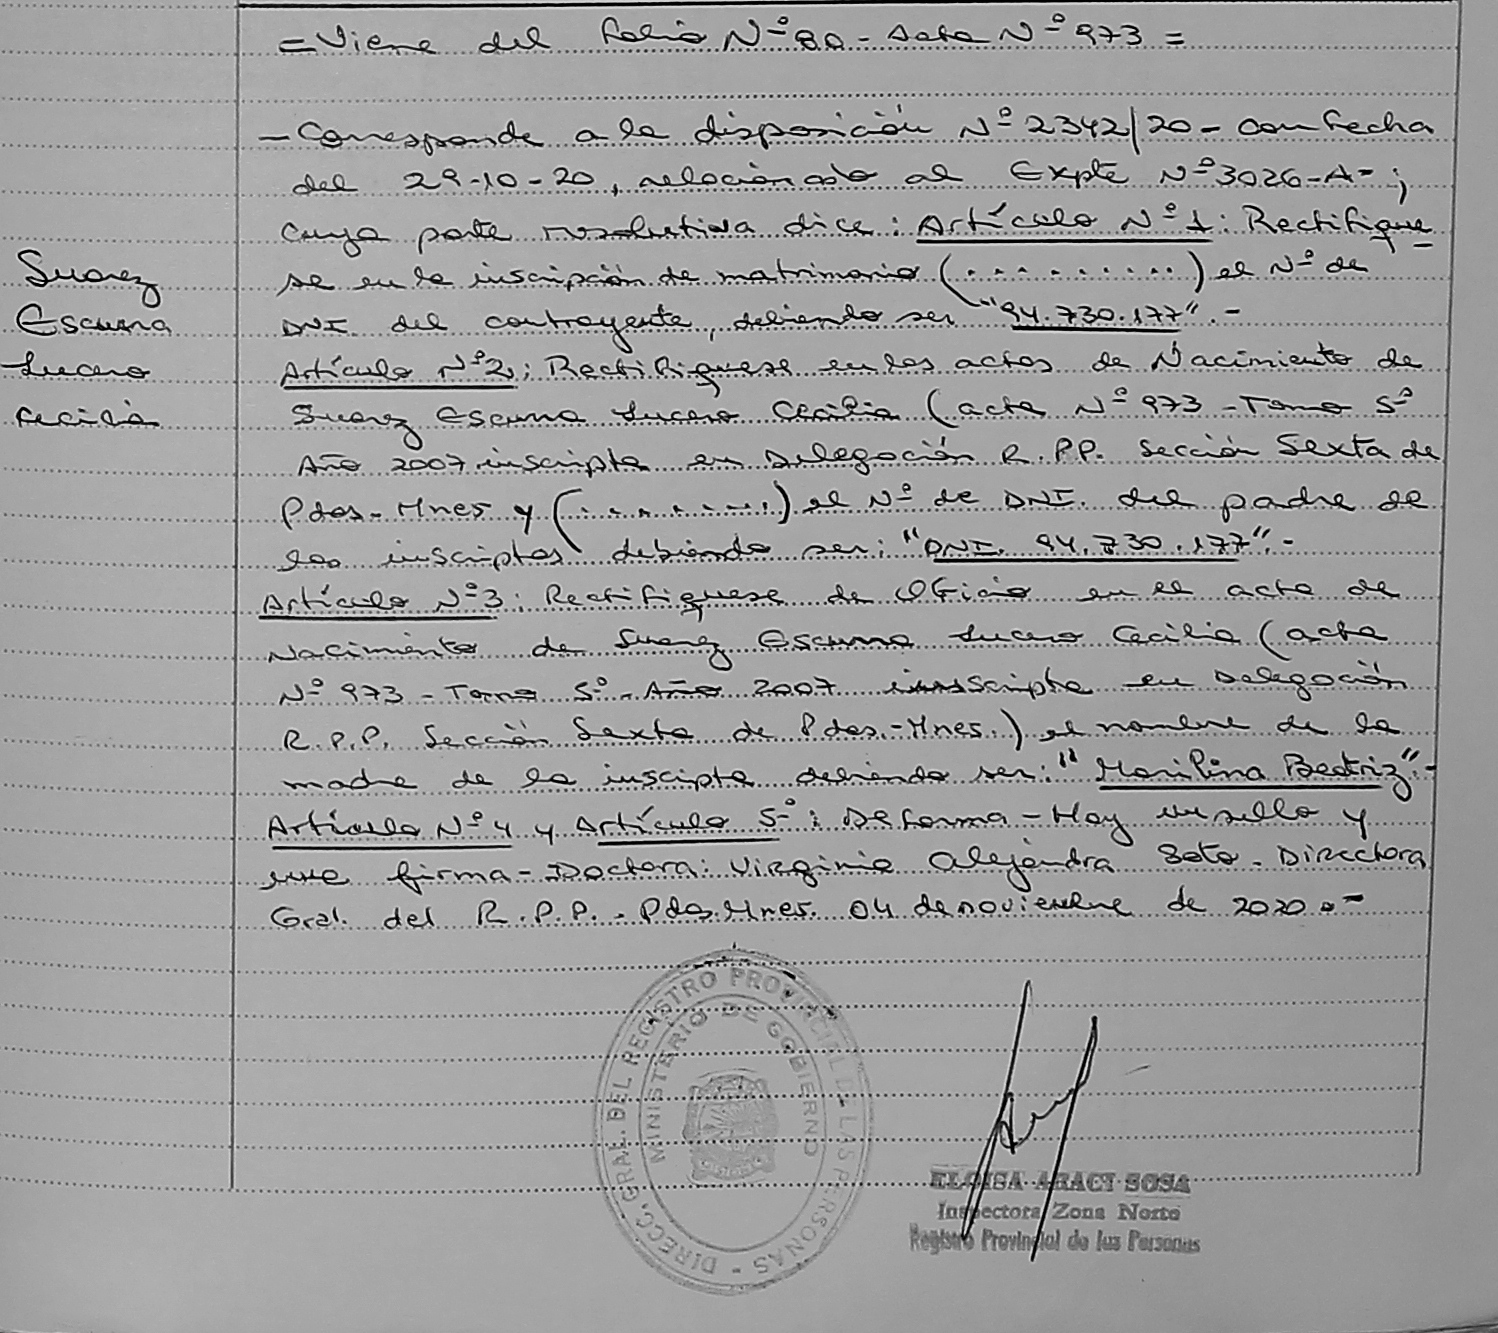 = Viene del Folio Nº 80 - Acta Nº 973 =
- Corresponde a la disposición Nº 2342/20 - con fecha
del 29-10-20, relacionado al Expte Nº 3026-A- ;
cuya parte resolutiva dice : Artículo Nº 1 : Rectifique
se en la inscripción de matrimonio (..........) el Nº de
DNI del contrayente, debiendo ser "94.730.177".-
Artículo Nº 2 : Rectifiquese en las actas de Nacimiento de
Suarez Escurra Lucero Cecilia (acta Nº 973 - Tomo 5º
Año 2007 inscripta en Delegación R.P.P. Sección Sexta de
Pdas-Mnes y (..........) el Nº de DNI. del padre de
los inscriptos debiendo ser: "DNI. 94.730.177".-
Artículo Nº 3 : Rectifiquese de Oficio en el acta de
Nacimiento de Suarez Escurra Lucero Cecilia (acta
Nº 973 - Tomo 5º - Año 2007 inscripta en Delegación
R.P.P. Sección Sexta de Pdas.-Mnes.) el nombre de la
madre de la inscipta debiendo ser: "Marilina Beatriz".-
Artículo Nº 4 y Artículo 5º : De forma - Hay un sello y
una firma - Doctora: Virginia Alejandra Soto - Directora
Gral. del R.P.P. - Pdas.Mnes. 04 de noviembre de 2020.-
Suarez
Escurra
Lucero
Cecilia
DIRECC. GRAL. DEL REGISTRO PROVINCIAL DE LAS PERSONAS -
MINISTERIO DE GOBIERNO
ELOISA ARACI SOSA
Inspectora Zona Norte
Registro Provincial de las Personas